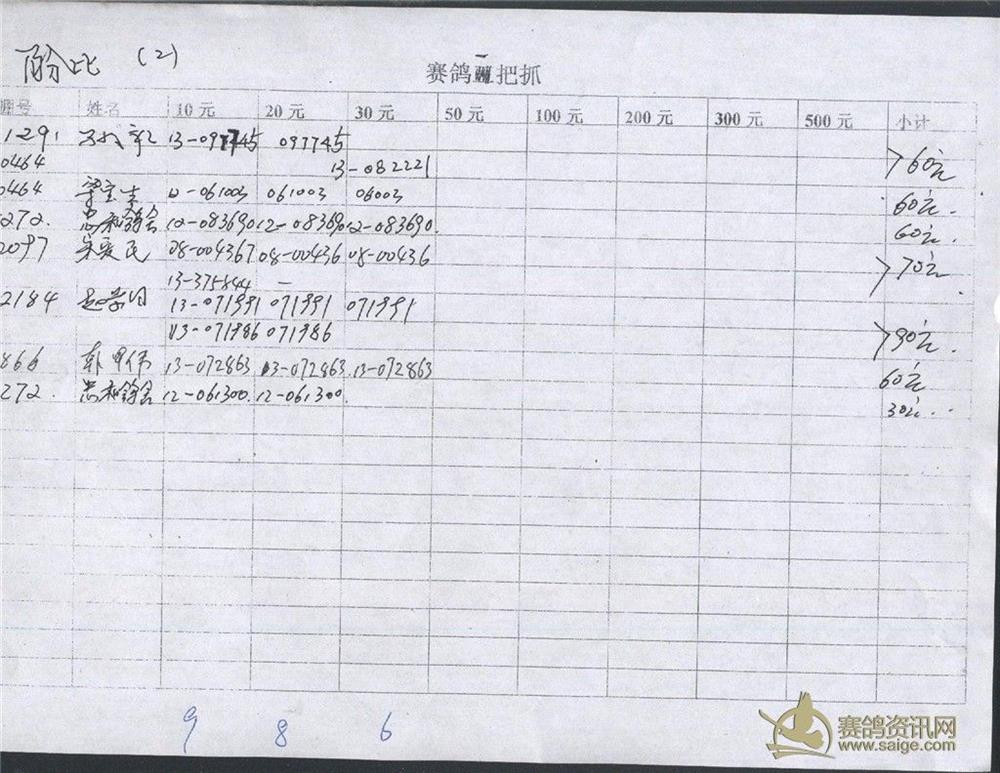 百分比 (2)
赛鸽一把抓
棚号 姓名 10 元 20 元 30 元 50 元 100 元 200 元 300 元 500 元 小计
1291 13-097745 097745
0464 13-082221 >60元
0464 12-061003 061003 06003 60元.
272. 12-083690 12-083690 12-083690. 60元.
2097 宋爱民 08-004367 08-00436 08-00436 >70元
13-375844 —
2184 13-071991 071991 071991
13-071986 071986 >90元.
866 13-072863 13-072863 13-072863 60元
272. 12-061300. 12-061300. 30元..
9 8 6
赛鸽资讯网
www.saige.com